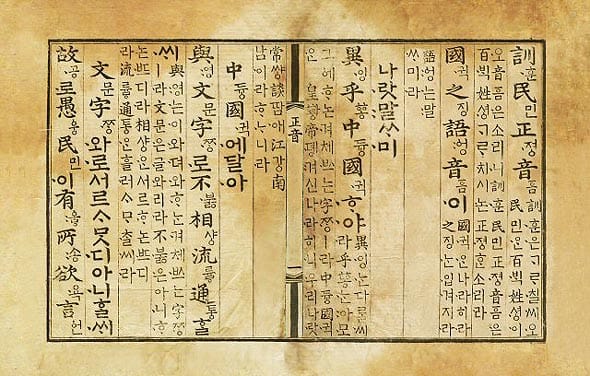 訓훈民민正졍音ᅙᅳᆷ
訓훈은ᄀᆞᄅᆞ칠씨오民민ᄋᆞᆫ百ᄇᆡᆨ姓셩이
오音ᅙᅳᆷ은소리니訓훈民민正졍音ᅙᅳᆷ은
百ᄇᆡᆨ姓셩ᄀᆞᄅᆞ치시논正졍ᄒᆞᆫ소리라
國귁之징語ᅌᅥᆼ音ᅙᅳᆷ이
國귁ᄋᆞᆫ나라히라
之징ᄂᆞᆫ입겨지라
語ᅌᅥᆼ는말
ᄊᆞ미라
나랏말ᄊᆞ미
異잉乎ᅘᅩᆼ中듕國귁ᄒᆞ야
異잉ᄂᆞᆫ다ᄅᆞᆯ씨
라乎ᅘᅩᆼᄂᆞᆫ아모
그ᅌᅦᄒᆞ논겨체ᄡᅳ는字ᄍᆞᆼㅣ라中듕國귁
ᄋᆞᆫ皇ᅘᅪᆼ帝뎽겨신나라히니우리나랏
正音
常썅談땀애江강南
남이라ᄒᆞᄂᆞ니라
中듕國귁에달아
與영文문字ᄍᆞᆼ로不ᄫᅮᇙ相샹流륳通통ᄒᆞᆯ
ᄊᆡ
與영는이와뎌와ᄒᆞ는겨체ᄡᅳ는字ᄍᆞᆼ
ㅣ라文문은글와리라不ᄫᅮᇙ은아니ᄒᆞ
논ᄠᅳ디라相샹ᄋᆞᆫ서르ᄒᆞ논ᄠᅳ디
라流륳通통ᄋᆞᆫ흘러ᄉᆞᄆᆞᄎᆞᆯ씨라
文문字ᄍᆞᆼ와로서르ᄉᆞᄆᆞᆺ디아니ᄒᆞᆯᄊᆡ
故공로愚ᅌᅮᆼ民민이有ᅌᅮᇢ所송欲욕言ᅌᅥᆫ